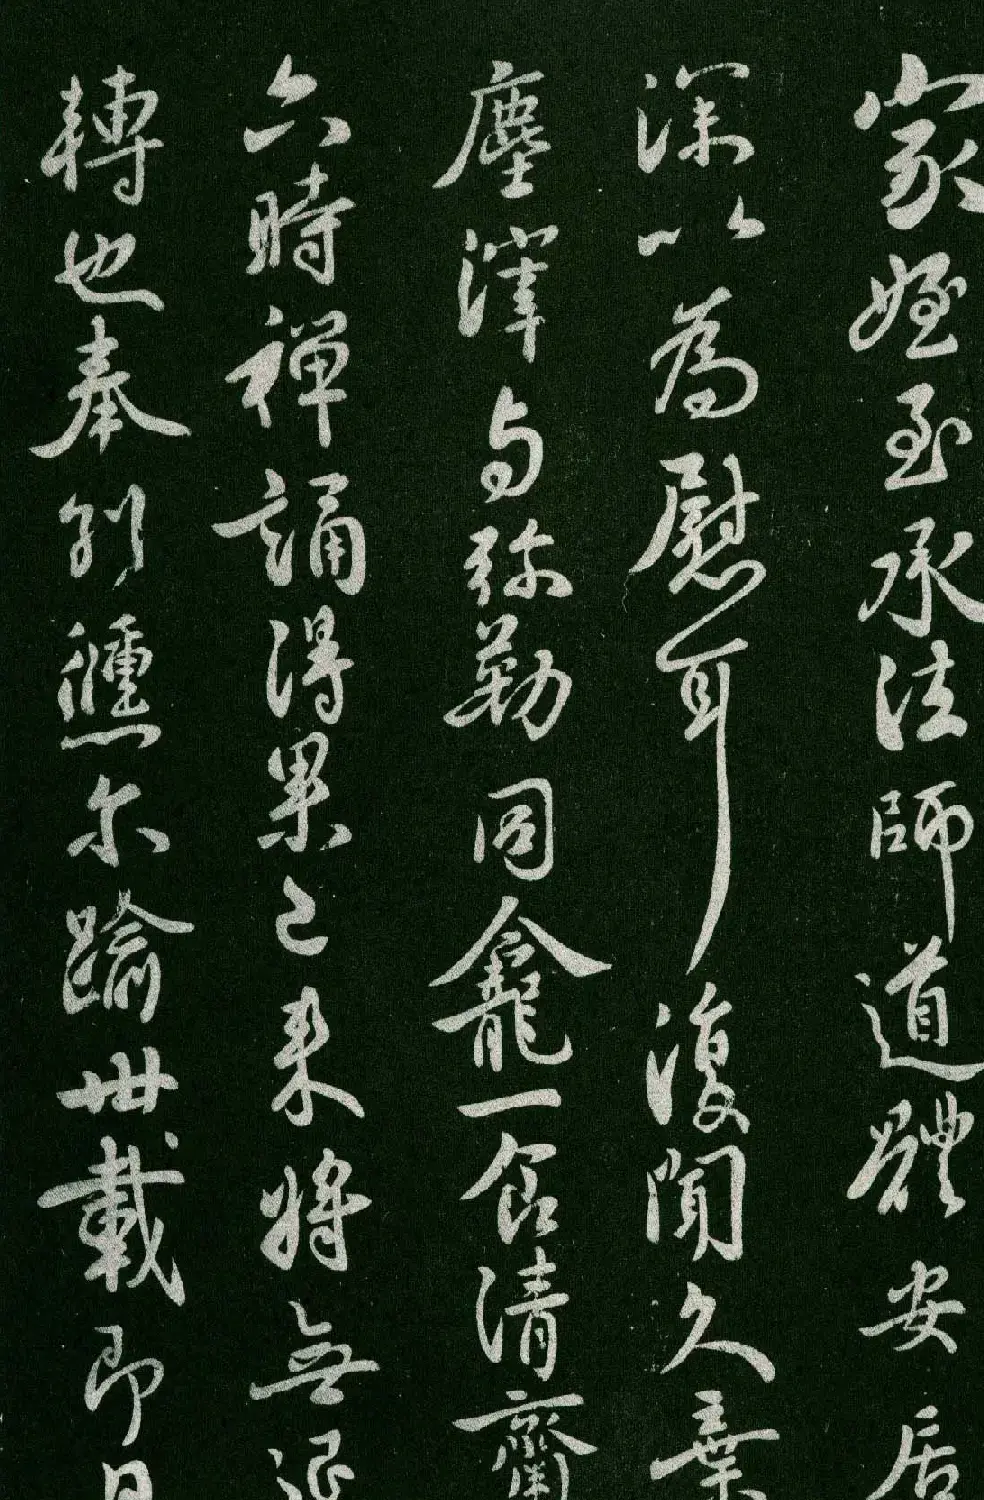 家姪至承法師道體安居
深以為慰耳復聞久棄
塵滓与弥勒同龕一食清齋
六時禪誦得果已来將無退
轉也奉別倏尓踰卅載即日